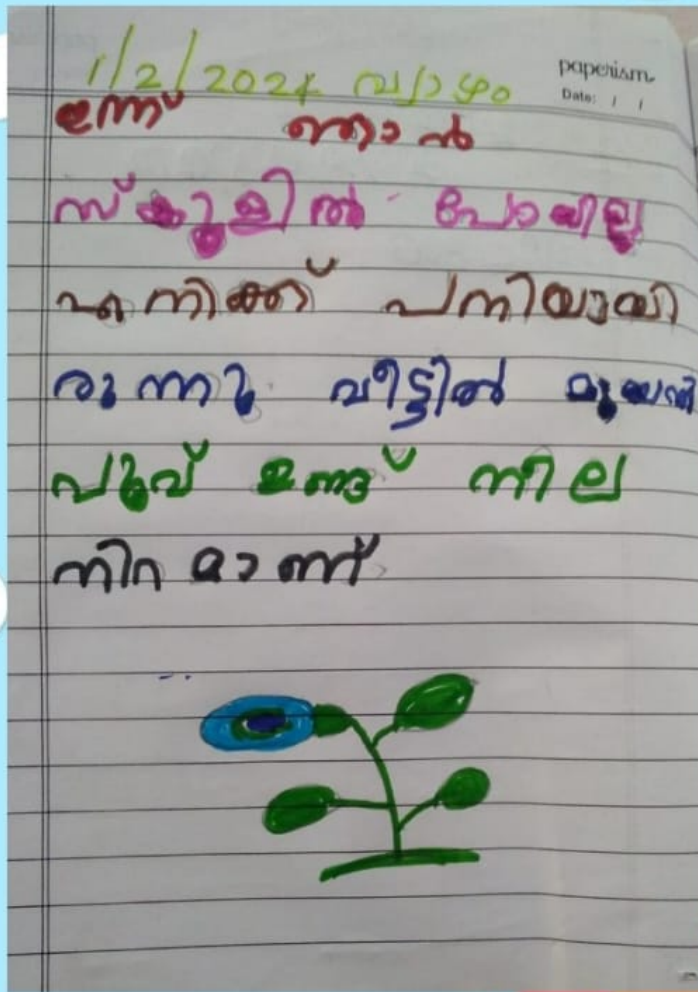 1/2/2024 വ്യാഴം
paperism
Date: / /
ഇന്ന് ഞാൻ
സ്കൂളിൽ പോയില്ല
എനിക്ക് പനിയായി
രുന്നു വീട്ടിൽ
പൂവ് ഉണ്ട് നീല
നിറമാണ്